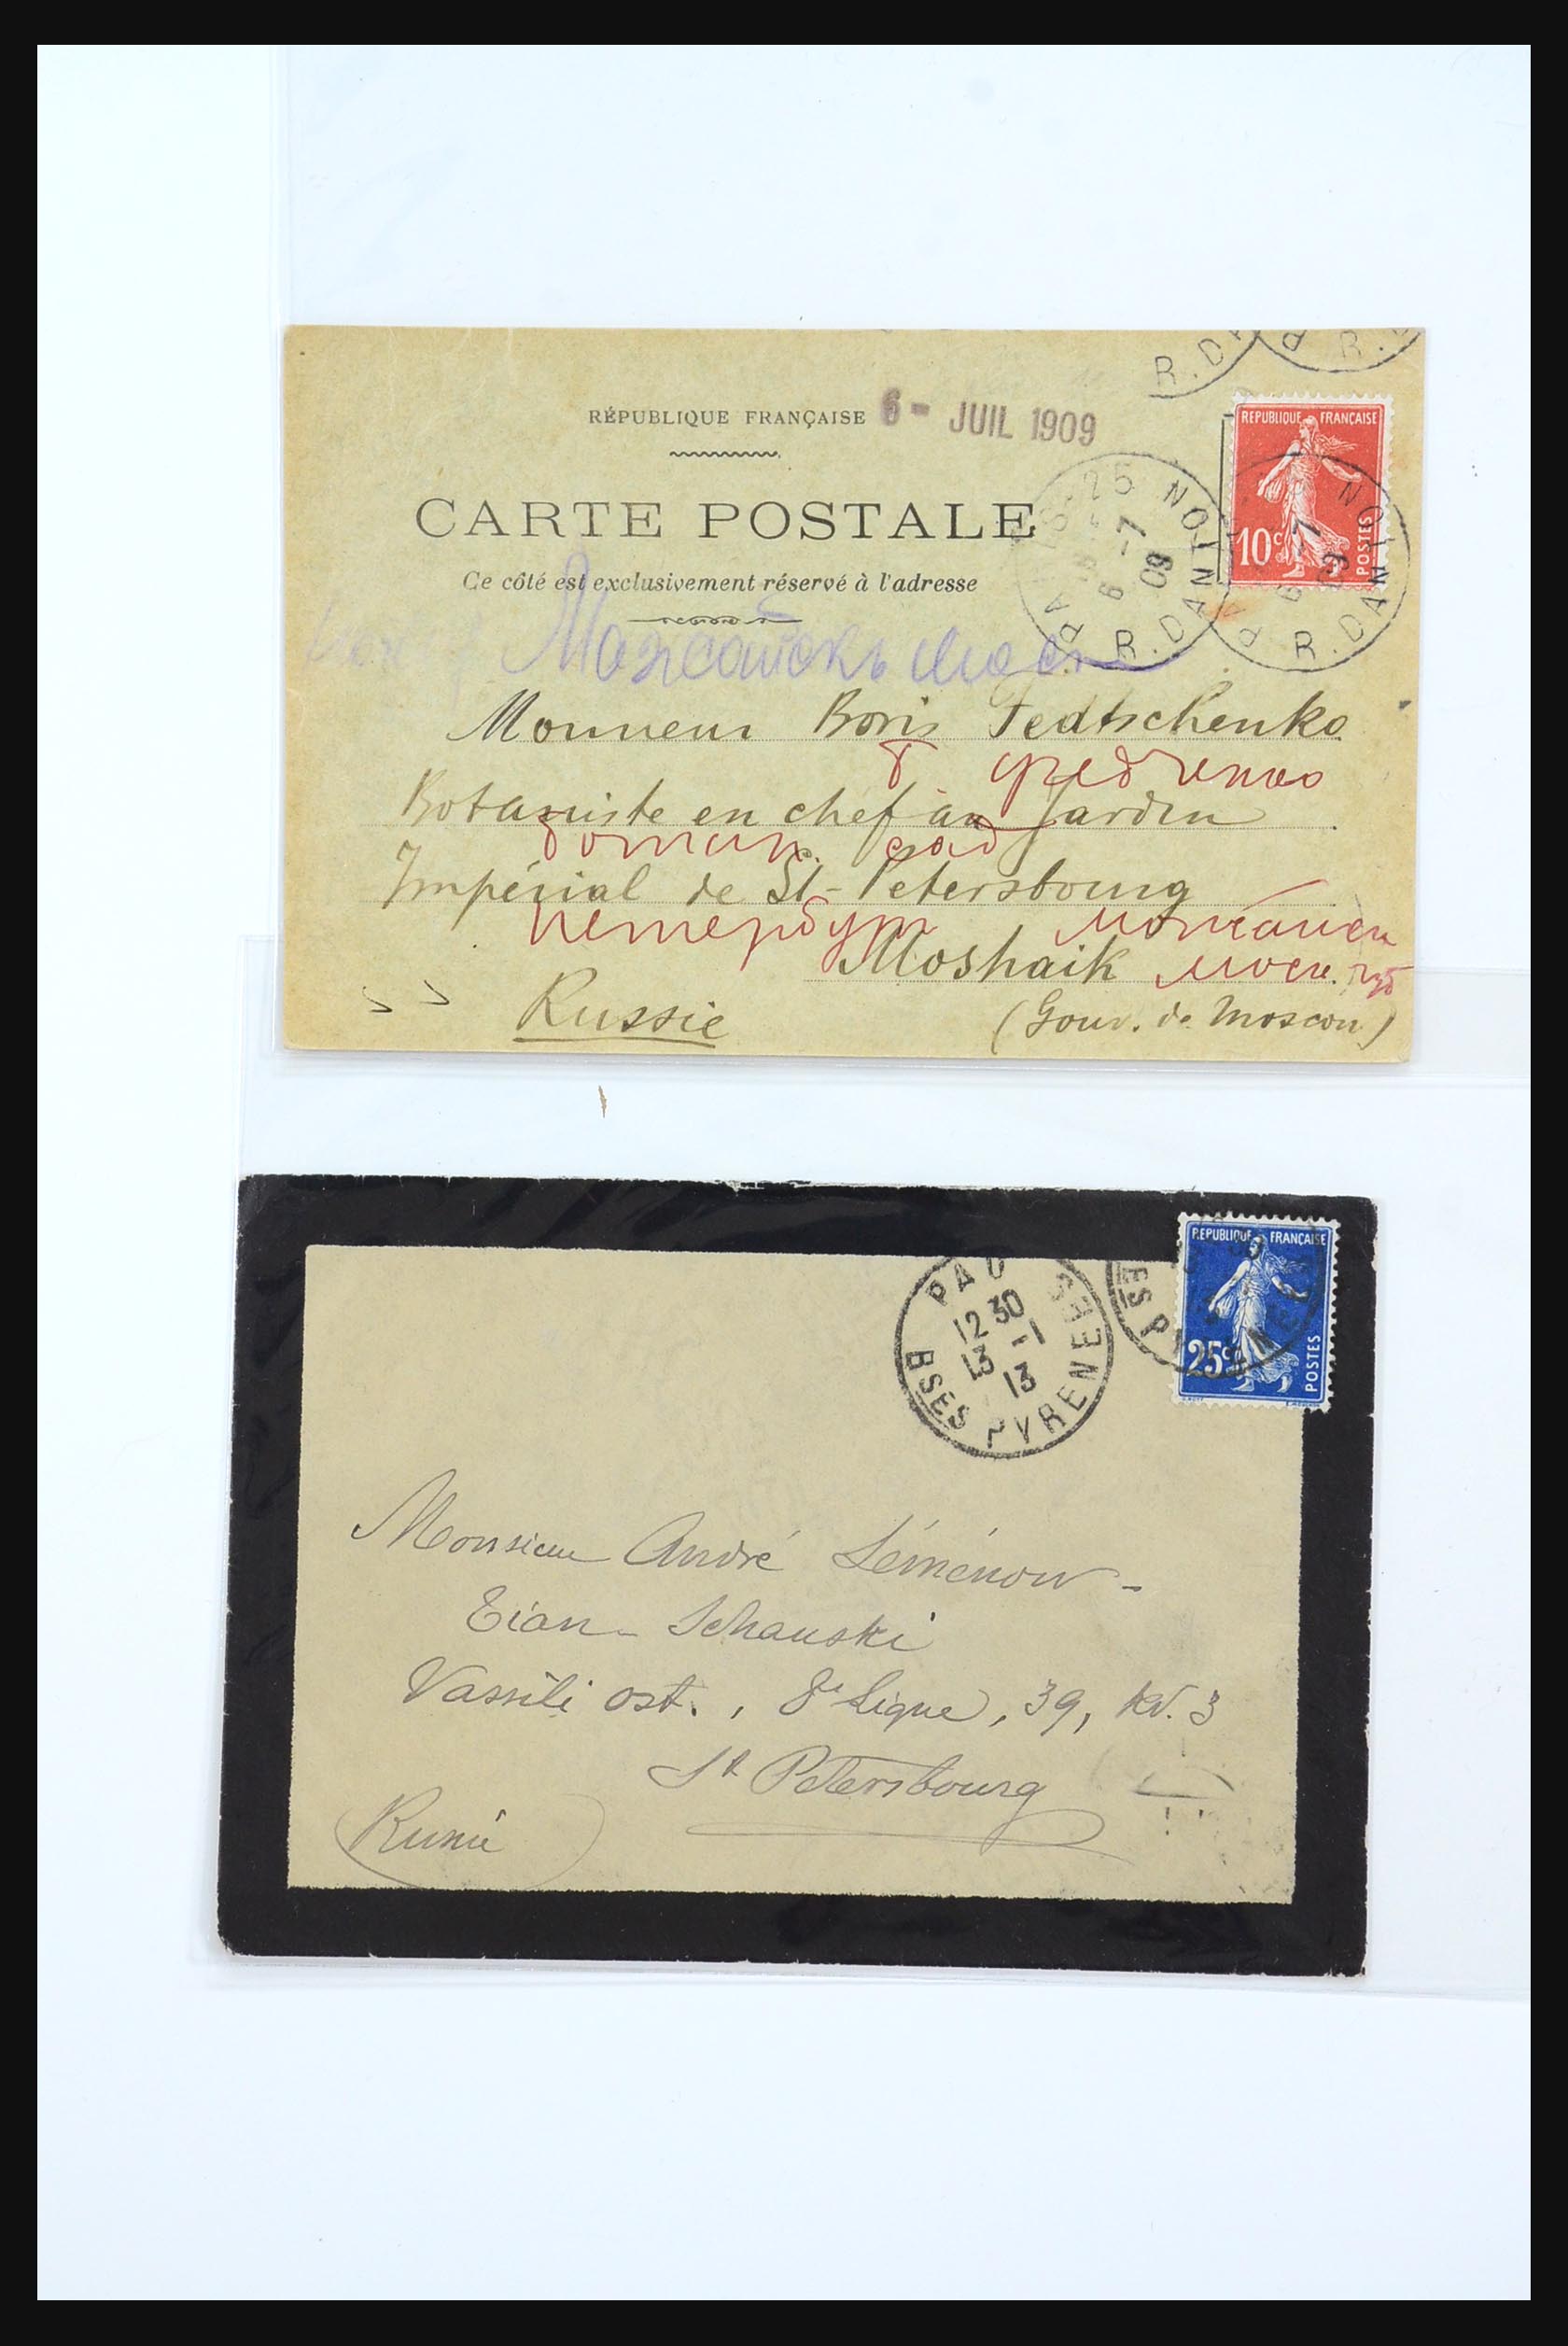 R.DA
P R.
RÉPUBLIQUE FRANÇAISE
6 - JUIL 1909
REPUBLIQUE FRANÇAISE
10c POSTES
CARTE POSTALE
PARIS-25
6 -7
09
R. DANTON
6 -7
09
P R. DANTON
Ce côté est exclusivement réservé à l'adresse
Можайскъ Моск
Monsieur Boris Fedtschenko
Б Федченко
Botaniste en chef au Jardin
ботан. сад
Impérial de St-Petersbourg
Петербург Можайск
Moshaik Моск. губ
Russie (Gouv. de Moscou)
REPUBLIQUE FRANÇAISE
25c POSTES
PAU
12 30
13 -1
13
BSES PYRENEES
ES PYRENEES
Monsieur André Séménow-
Tian-Schanski
Vassili ost., 8e Ligne, 39, Kv. 3
St Petersbourg
Russie